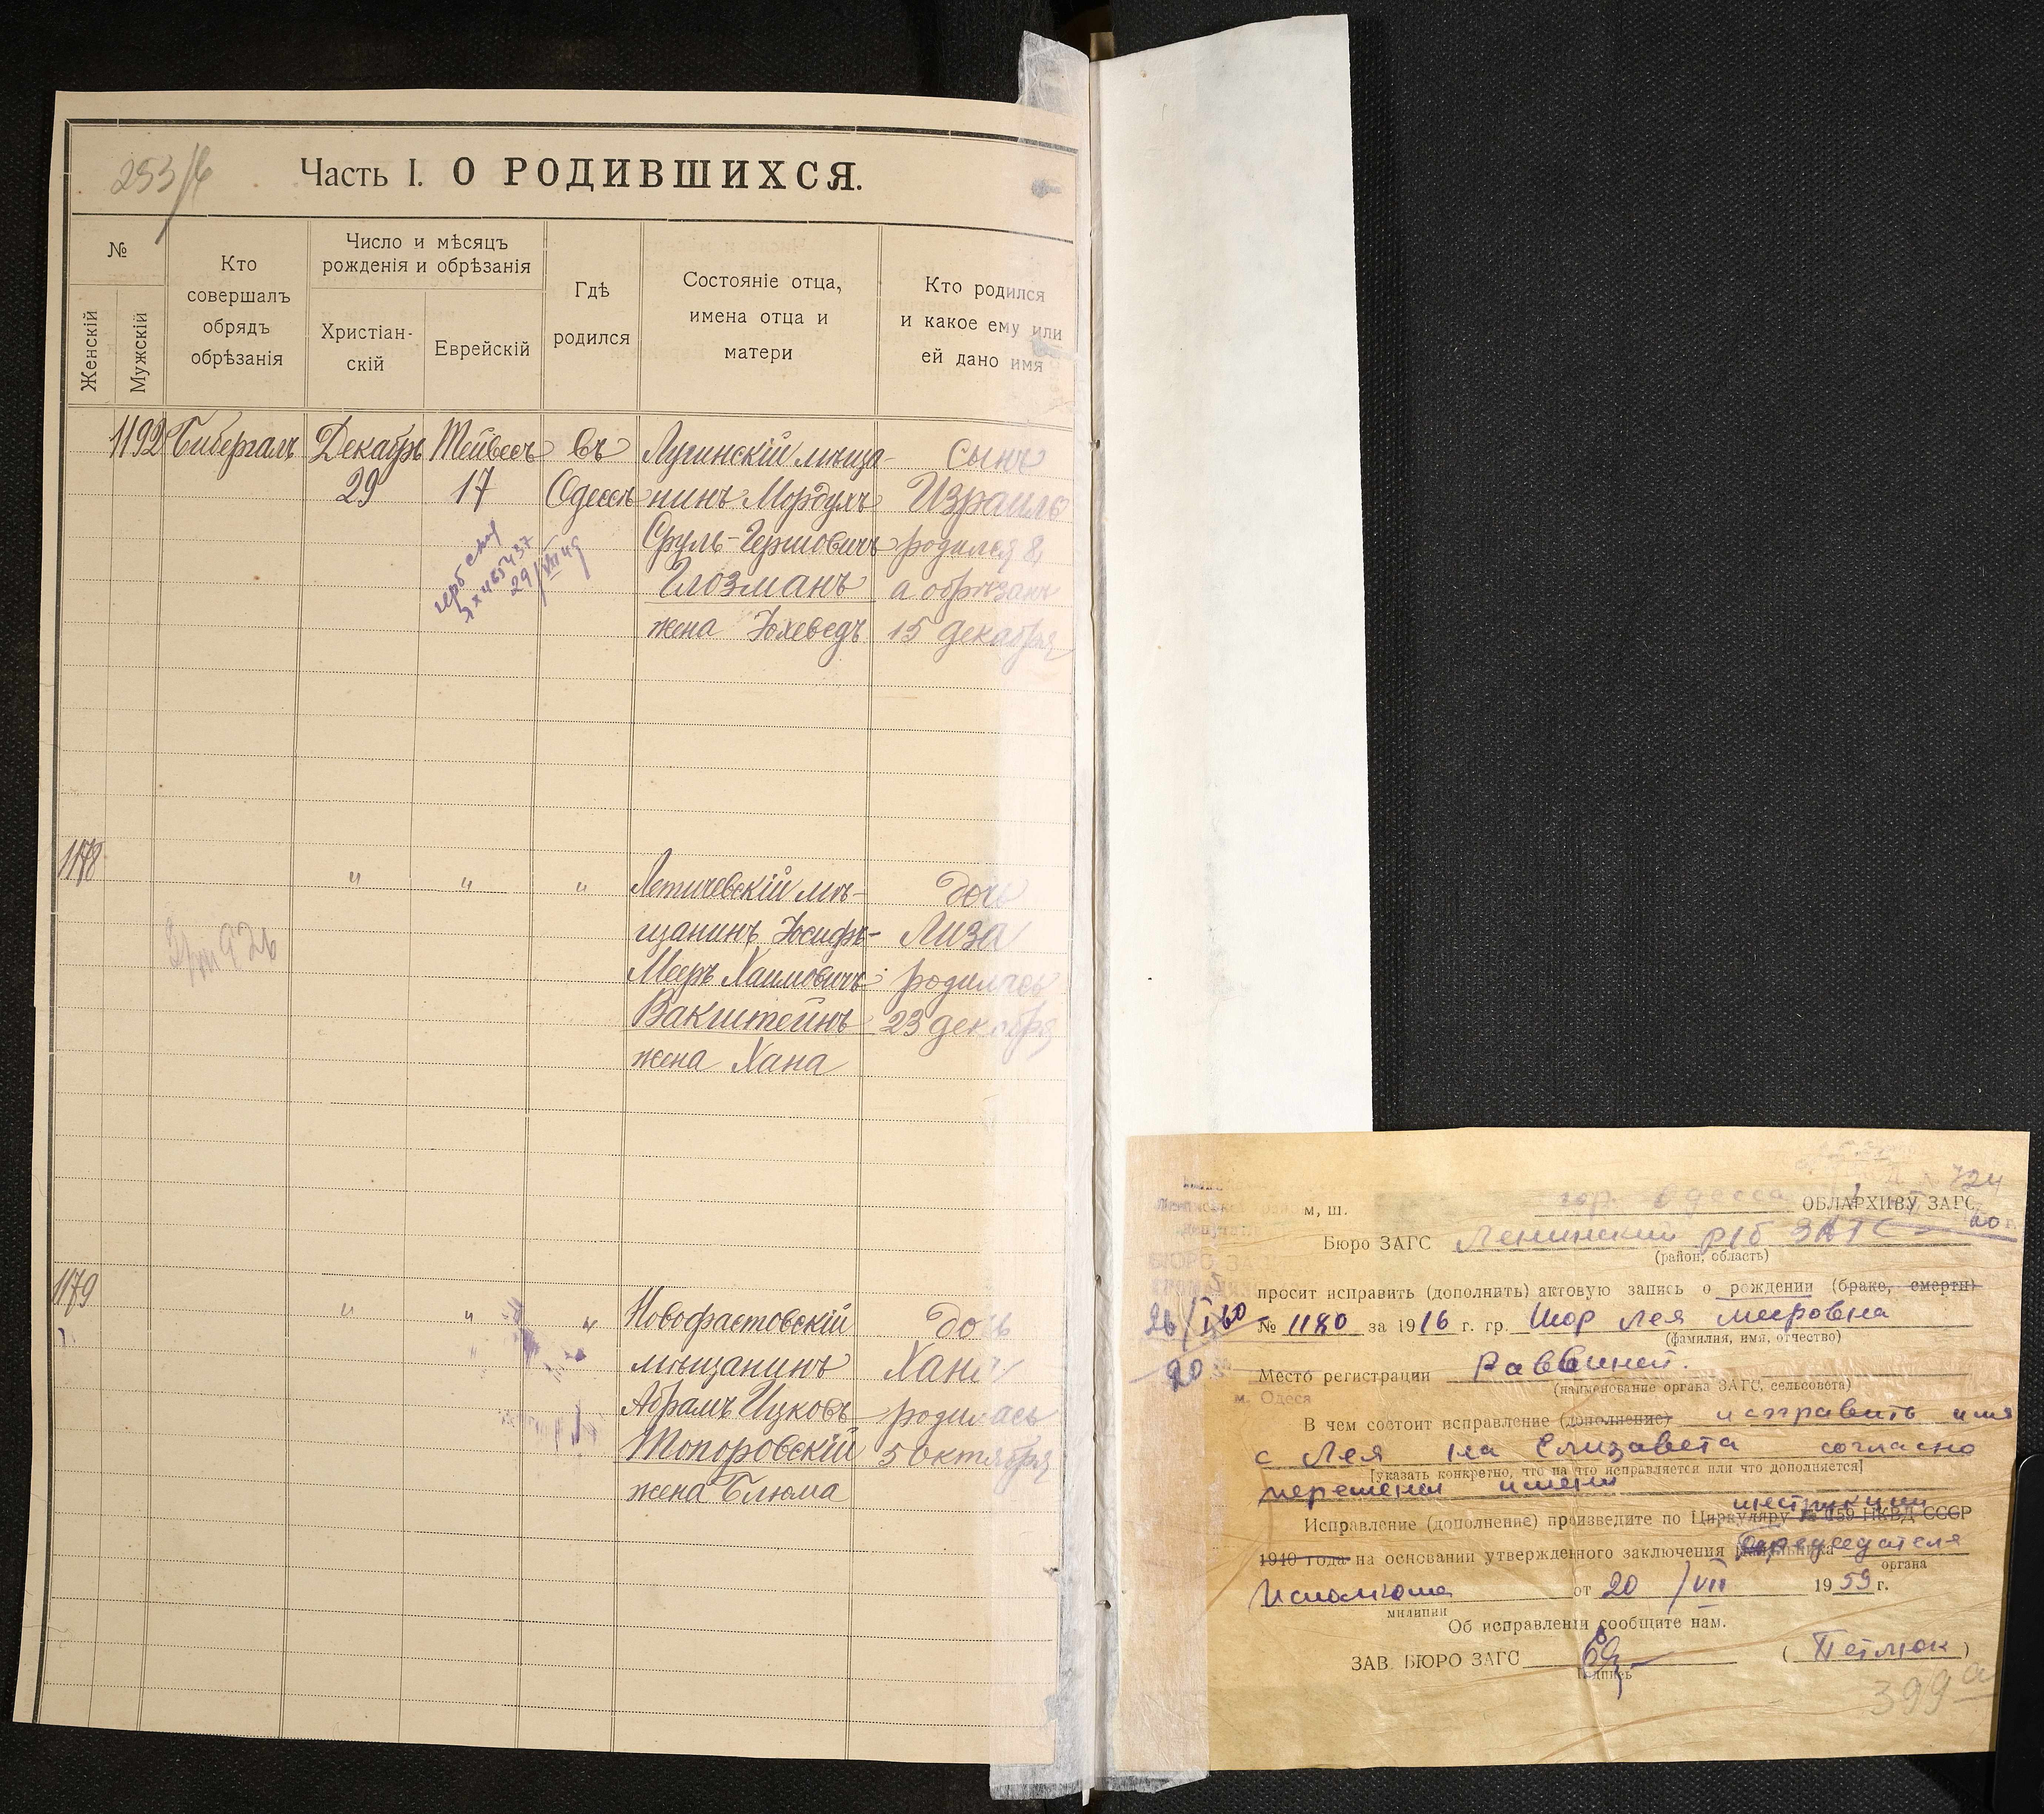 Часть I. О РОДИВШИХСЯ.
№
Женскій
Мужскій
Кто
совершалъ
обрядъ
обрѣзанія
Число и мѣсяцъ
рожденія и обрѣзанія
Христіан-
скій
Еврейскій
Гдѣ
родился
Состояніе отца,
имена отца и
матери
Кто родился
и какое ему или
ей дано имя
1192 Бибергалъ Декабрь Тейвесъ въ Лугинскій мѣща- сынъ
29 17 Одессѣ нинъ Мордухъ Израиль
Сруль-Гершовичъ родился 8,
Глозманъ а обрѣзанъ
жена Юхеведъ 15 декабря
29/VIII 49
1178 " " " Летичевскій мѣ- дочь
щанинъ Іосифъ- Лиза
Мееръ Хаимовичъ родилась
Вакштейнъ 23 декабря
жена Хана
1179 " " " Новофастовскій дочь
мѣщанинъ Хана
Абрамъ Ицковъ родилась
Топоровскій 5 октября
жена Блюма
724
м, ш. гор. Одесса ОБЛАРХИВУ ЗАГС
Бюро ЗАГС Ленинский р/б ЗАГС
(район, область)
просит исправить (дополнить) актовую запись о рождении (браке, смерти)
№ 1180 за 1916 г. гр. Шор Лея Мееровна
(фамилия, имя, отчество)
Место регистрации Раввинат.
(наименование органа ЗАГС, сельсовета)
м. Одеса
В чем состоит исправление (дополнение) исправить имя
с Лея на Елизавета согласно
[указать конкретно, что на что исправляется или что дополняется]
перемены имени
инструкции
Исправление (дополнение) произведите по Циркуляру № 159 НКВД СССР
1940 года на основании утвержденного заключения начальника председателя
органа
Исполкома от 20/VII 1959 г.
милиции
Об исправлении сообщите нам.
ЗАВ. БЮРО ЗАГС (Петлюк)
подпись
399а